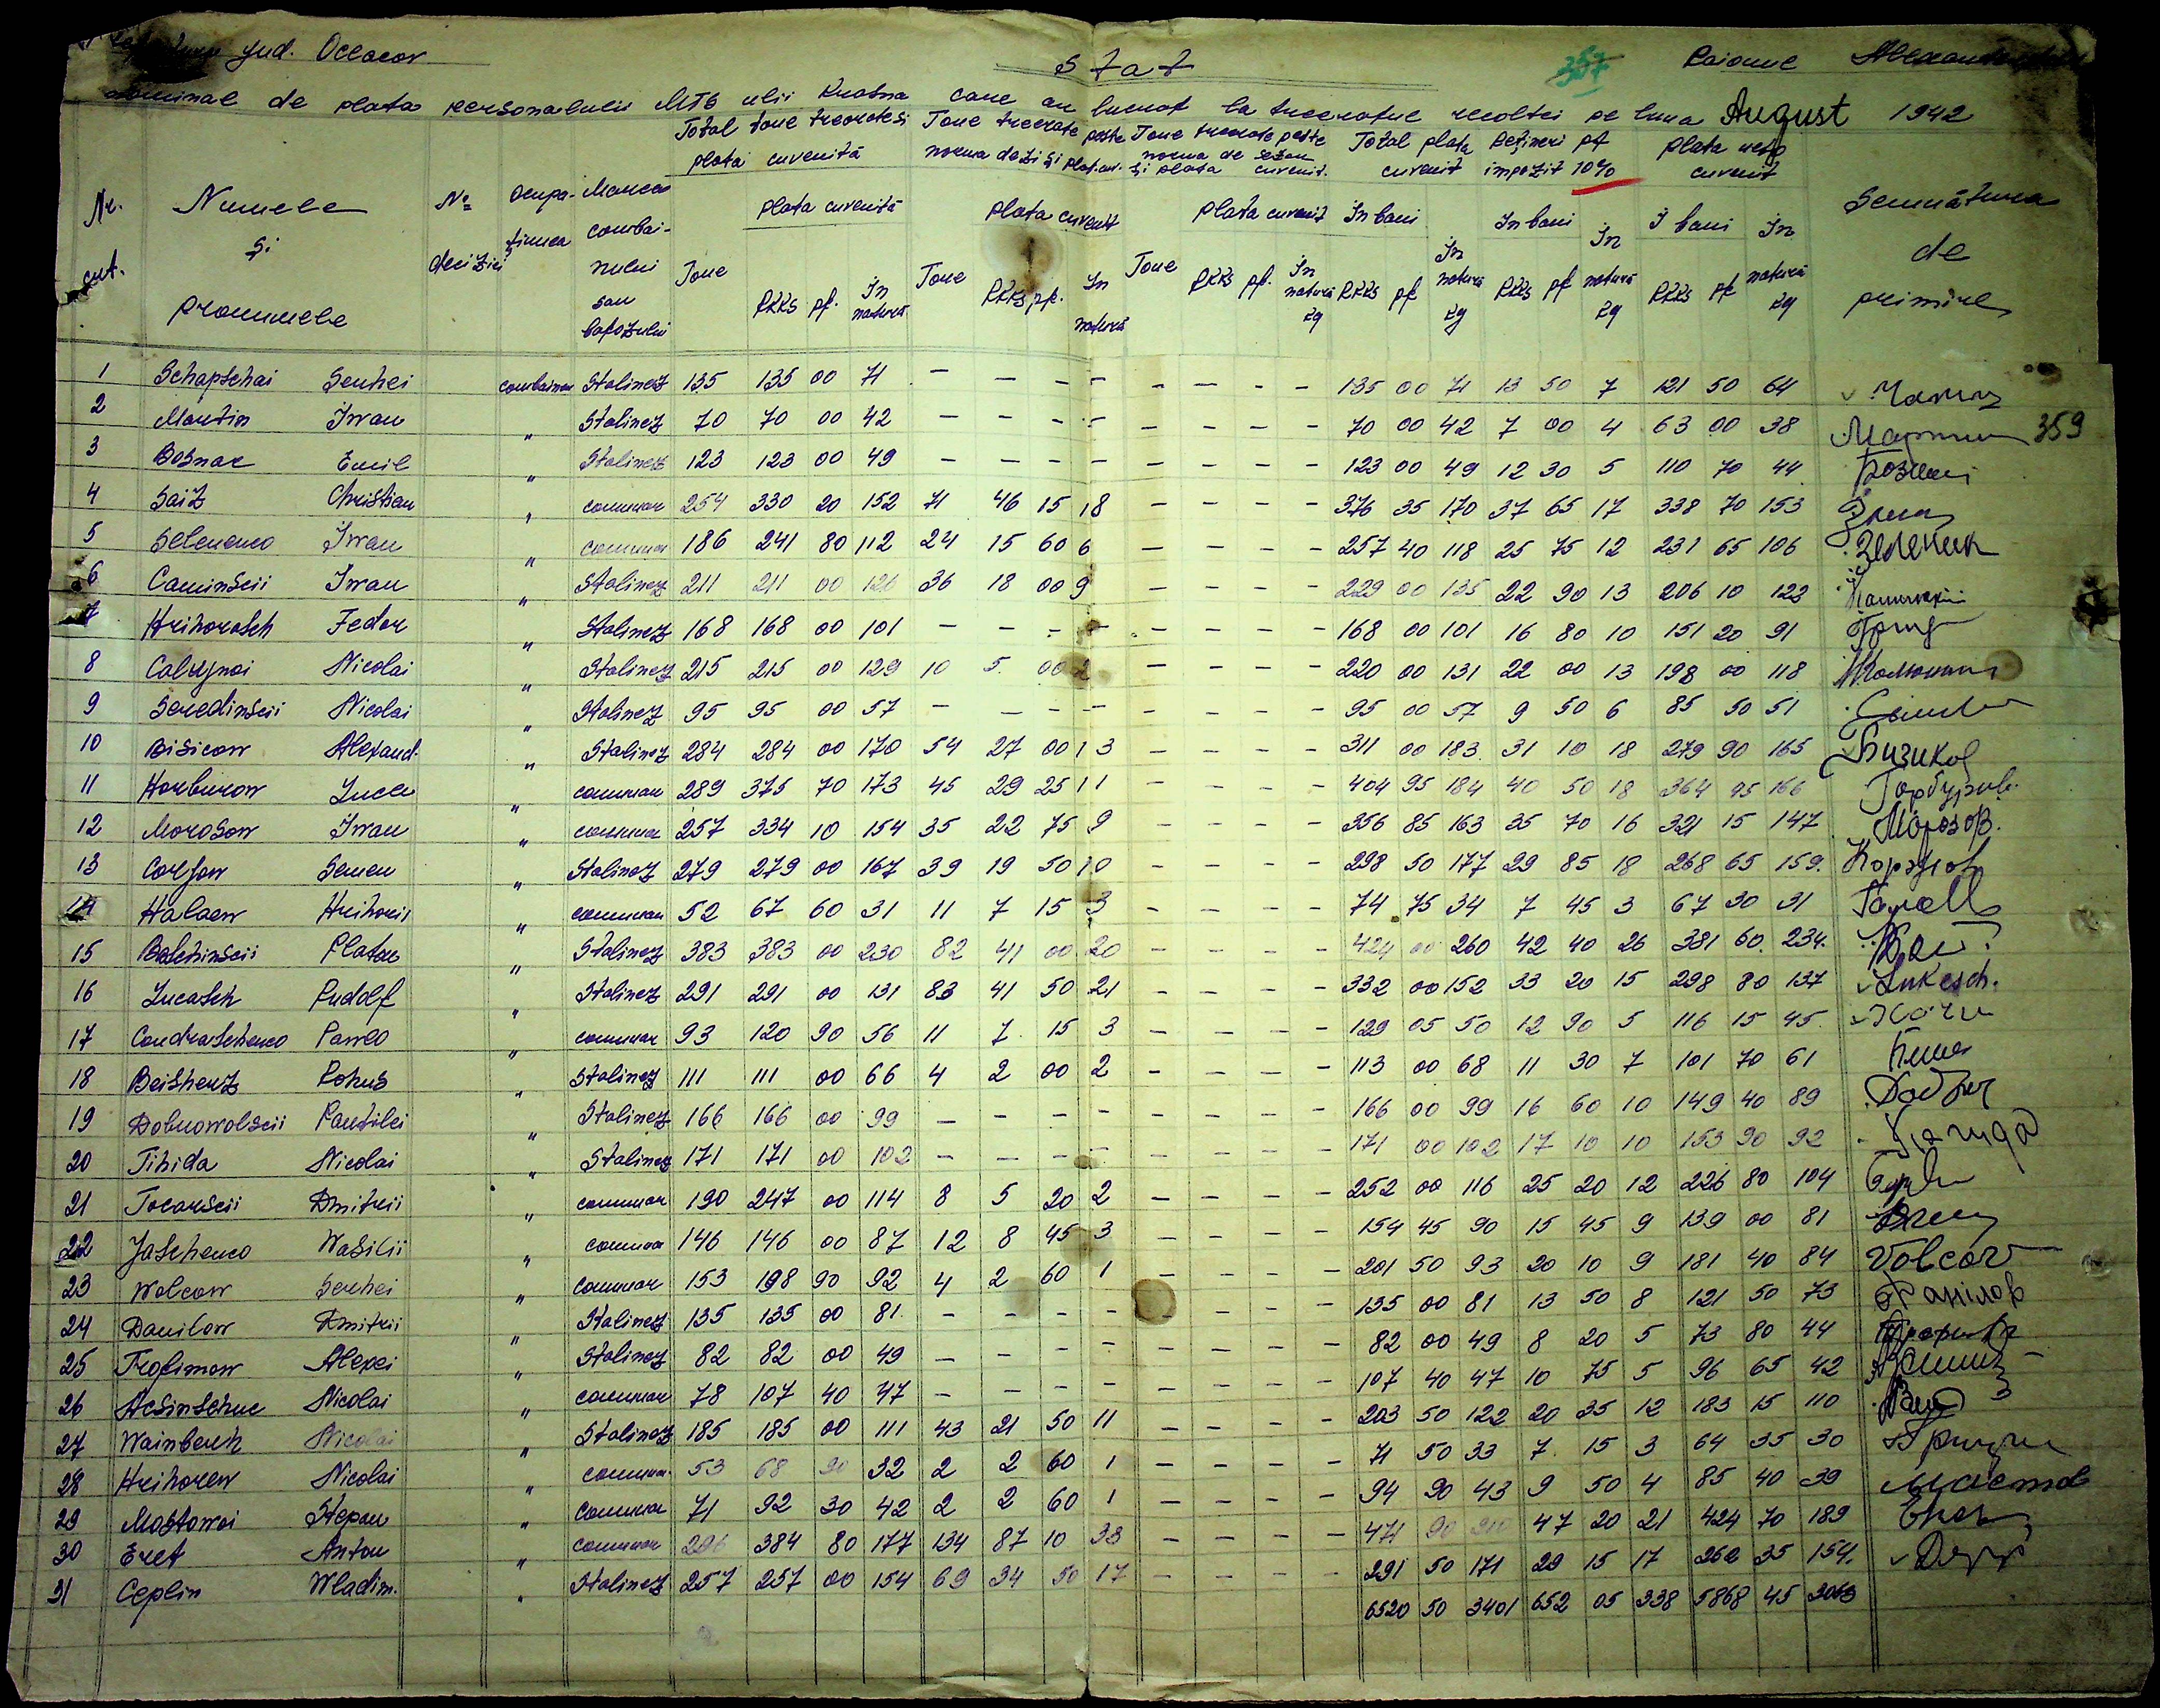 jud. Oceacov
Stat
357
Raionul
nominal de plata personalului MTS ulii Krasna care au lucrat la treeratul recoltei pe luna August 1942
Total tone treerate si plata cuvenită
Tone treerate peste norma de zi și plat. cuv.
Tone treerate peste norma de sezon și plata cuvenit.
Total plata cuvenit
Rețineri pt impozit 10%
Plata neto cuvenit
Nr. crt.
Numele și pronumele
No deciziei
Ocupațiunea
Marca combainului sau batozului
Tone
Plata cuvenită
RKKS pf. In natură
Tone
Plata cuvenit
RKKS pf. In natură
Tone
Plata cuvenit
RKKS pf. In natură kg
In bani
RKKS pf In natură kg
In bani
RKKS pf In natură kg
I bani
RKKS pf In natură kg
Semnătura de primire
1 Schapschai Serhei combainer Stalinez 135 135 00 71 - - - - - - - - 135 00 71 13 50 7 121 50 64
2 Martin Iwan " Stalinez 70 70 00 42 - - - - - - - - 70 00 42 7 00 4 63 00 38 Мартин 359
3 Bosnac Emil " Stalinez 123 123 00 49 - - - - - - - - 123 00 49 12 30 5 110 70 44
4 Saiz Christian " comunar 254 330 20 152 71 46 15 18 - - - - 376 35 170 37 65 17 338 70 153
5 Selenenco Iwan " comunar 186 241 80 112 24 15 60 6 - - - - 257 40 118 25 75 12 231 65 106
6 Caminscii Iwan " Stalinez 211 211 00 126 36 18 00 9 - - - - 229 00 135 22 90 13 206 10 122
7 Hrihorasch Fedor " Stalinez 168 168 00 101 - - - - - - - - 168 00 101 16 80 10 151 20 91
8 Caluynoi Nicolai " Stalinez 215 215 00 129 10 5 00 2 - - - - 220 00 131 22 00 13 198 00 118
9 Seredinscii Nicolai " Stalinez 95 95 00 57 - - - - - - - - 95 00 57 9 50 6 85 50 51
10 Bisicow Alexand. " Stalinez 284 284 00 170 54 27 00 13 - - - - 311 00 183 31 10 18 279 90 165 Бизиков
11 Horburow Luca " comunar 289 375 70 173 45 29 25 11 - - - - 404 95 184 40 50 18 364 95 166
12 Morosow Iwan " comunar 257 334 10 154 35 22 75 9 - - - - 356 85 163 35 70 16 321 15 147 Морозов.
13 Corjow Semen " Stalinez 279 279 00 167 39 19 50 10 - - - - 298 50 177 29 85 18 268 65 159.
14 Halaew Hrihorii " comunar 52 67 60 31 11 7 15 3 - - - - 74 75 34 7 45 3 67 30 31
15 Batchinscii Platon " Stalinez 383 383 00 230 82 41 00 20 - - - - 424 00 260 42 40 26 381 60 234.
16 Lucasch Rudolf " Stalinez 291 291 00 131 83 41 50 21 332 00 152 33 20 15 298 80 137 Lukesch.
17 Condraschenco Pawlo " comunar 93 120 90 56 11 7 15 3 - - - - 129 05 50 12 90 5 116 15 45
18 Beisherz Rohus " Stalinez 111 111 00 66 4 2 00 2 - - - - 113 00 68 11 30 7 101 70 61
19 Dobrowolscii Pantilei " Stalinez 166 166 00 99 - - - - - - - - 166 00 99 16 60 10 149 40 89
20 Tihida Nicolai " Stalinez 171 171 00 102 - - - - - - - - 171 00 102 17 10 10 153 90 92
21 Tocarscii Dmitrii " comunar 190 247 00 114 8 5 20 2 - - - - 252 00 116 25 20 12 226 80 104
22 Jaschenco Wasilii " comunar 146 146 00 87 12 8 45 3 - - - - 154 45 90 15 45 9 139 00 81
23 Wolcow Serhei " comunar 153 198 90 92 4 2 60 1 - - - - 201 50 93 20 10 9 181 40 84 Volcov
24 Danilow Dmitrii " Stalinez 135 135 00 81 - - - - - - - - 135 00 81 13 50 8 121 50 73
25 Trofimow Alexei " Stalinez 82 82 00 49 - - - - - - - - 82 00 49 8 20 5 73 80 44
26 Acsinschuc Nicolai " comunar 78 107 40 47 - - - - - - - - 107 40 47 10 75 5 96 65 42
27 Wainberh Nicolai " Stalinez 185 185 00 111 43 21 50 11 - - - - 203 50 122 20 35 12 183 15 110
28 Hrihorew Nicolai " comunar 53 68 90 32 2 2 60 1 - - - - 71 50 33 7 15 3 64 35 30
29 Mostowoi Stepan " comunar 71 92 30 42 2 2 60 1 - - - - 94 90 43 9 50 4 85 40 39
30 Eret Anton " comunar 296 384 80 177 134 87 10 33 - - - - 471 90 210 47 20 21 424 70 189
31 Ceplin Wladim. " Stalinez 257 257 00 154 69 34 50 17 - - - - 291 50 171 29 15 17 262 35 154.
6520 50 3401 652 05 338 5868 45 3063